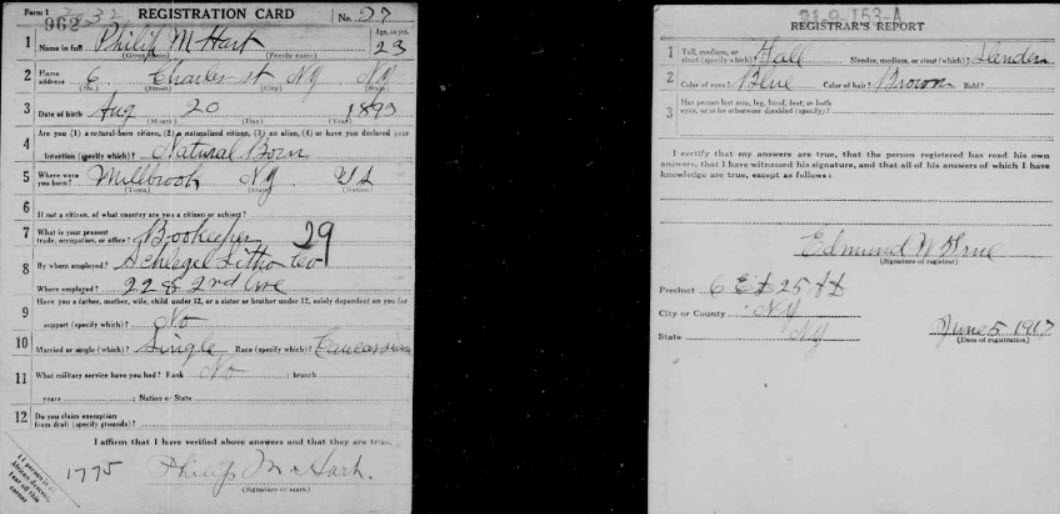 Form 1
962
REGISTRATION CARD
No. 27
1 Name in full Philip M Hart
Age, in yrs. 23
(Given name) (Family name)
2 Home address 6 Charles st NY NY
(No.) (Street) (City) (State)
3 Date of birth Aug 20 1893
(Month) (Day) (Year)
4 Are you (1) a natural-born citizen, (2) a naturalized citizen, (3) an alien, (4) or have you declared your
intention (specify which)? Natural Born
5 Where were you born? Millbrook NY US
(Town) (State) (Nation)
6 If not a citizen, of what country are you a citizen or subject?
7 What is your present trade, occupation, or office? Bookeeper 29
8 By whom employed? Schlegel Litho Co
Where employed? 2nd Ave
9 Have you a father, mother, wife, child under 12, or a sister or brother under 12, solely dependent on you for
support (specify which)? No
10 Married or single (which)? Single Race (specify which)? Caucasian
11 What military service have you had? Rank No ; branch
years ; Nation or State
12 Do you claim exemption from draft (specify grounds)?
I affirm that I have verified above answers and that they are true.
1775 Philip M Hart.
(Signature or mark)
If person is of
African descent,
tear off this
corner
31-9-153-A
REGISTRAR'S REPORT
1 Tall, medium, or short (specify which)? Tall Slender, medium, or stout (which)? Slender
2 Color of eyes? Blue Color of hair? Brown Bald?
3 Has person lost arm, leg, hand, foot, or both
eyes, or is he otherwise disabled (specify)?
I certify that my answers are true, that the person registered has read his own
answers, that I have witnessed his signature, and that all of his answers of which I have
knowledge are true, except as follows:
Edmund W
(Signature of registrar)
Precinct 6 ED 25 AD
City or County NY
State NY
June 5 1917
(Date of registration)